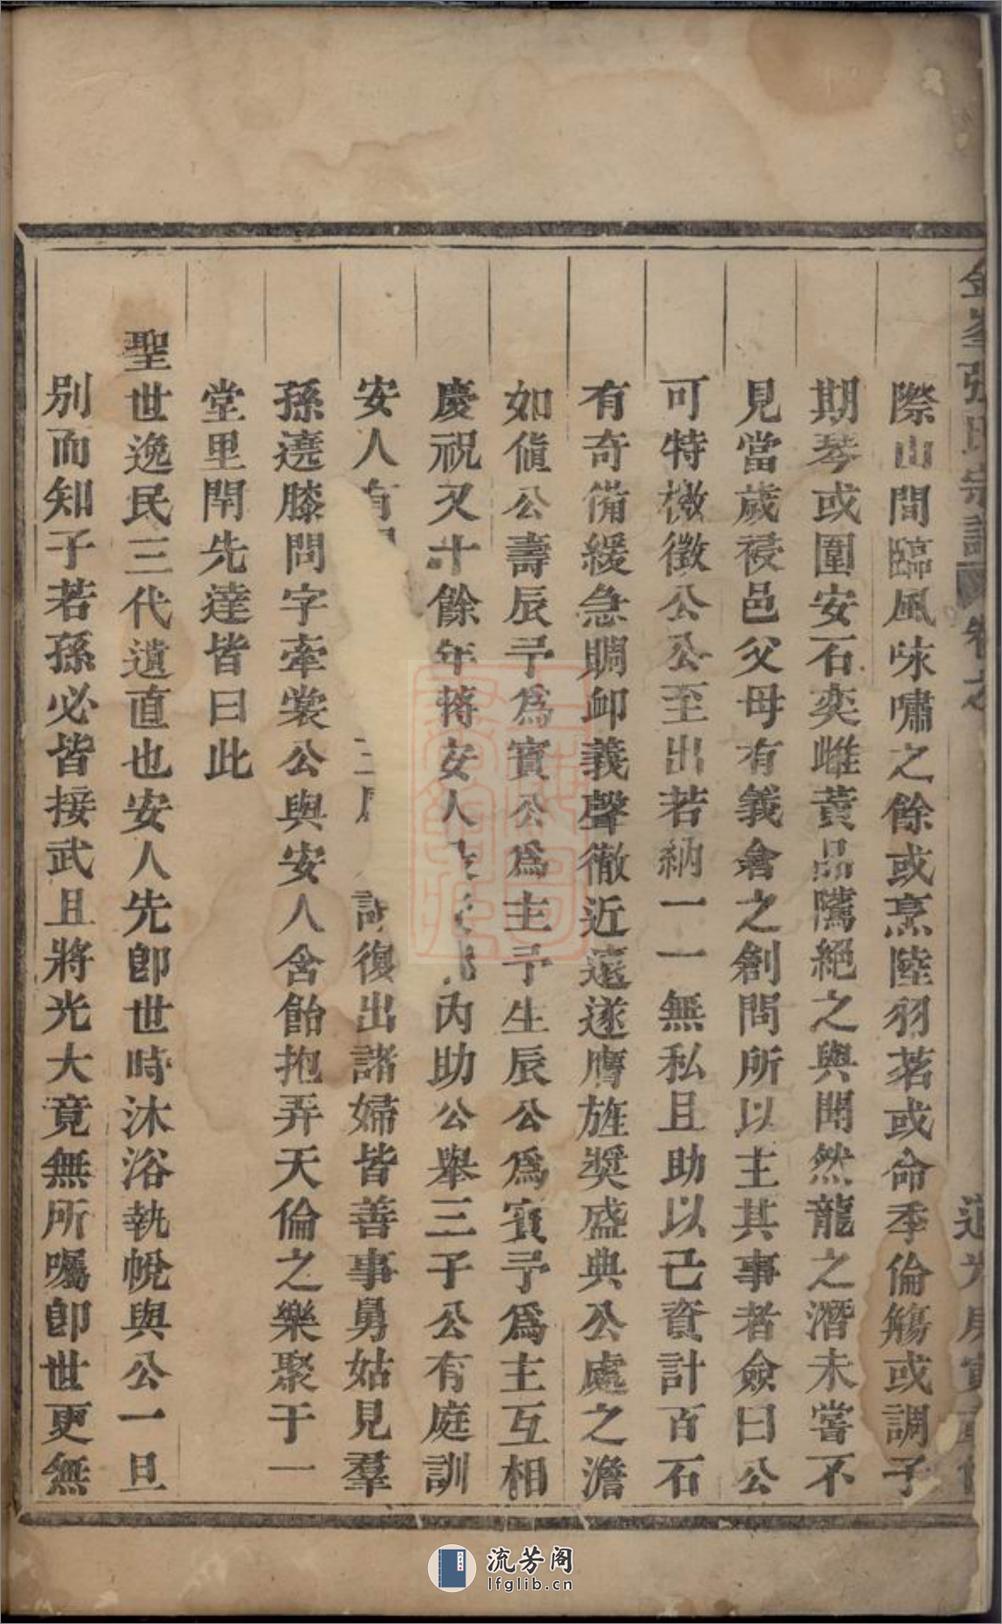 際山間臨風咏嘯之餘或烹陸羽茗或命季倫觴或調子
期琴或圍安石奕雌黃品隲絕之與閧然龍之潛未嘗不
見當歲祲邑父母有義倉之創問所以主其事者僉曰公
可特檄徵公公至出若納一一無私且助以己資計百石
有奇備緩急賙卹義聲徹近遠遂膺旌獎盛典公處之澹
如値公壽辰予爲賓公爲主予生辰公爲賓予爲主互相
慶祝又十餘年蔣安人內助公舉三子公有庭訓
安人有復出諸婦皆善事舅姑見羣
孫遶膝問字牽裳公與安人含飴抱弄天倫之樂聚于一
堂里閈先達皆曰此
聖世逸民三代遺直也安人先卽世時沐浴執帨與公一旦
別而知子若孫必皆接武且將光大竟無所囑卽世更無
流芳阁
lfglib.cn